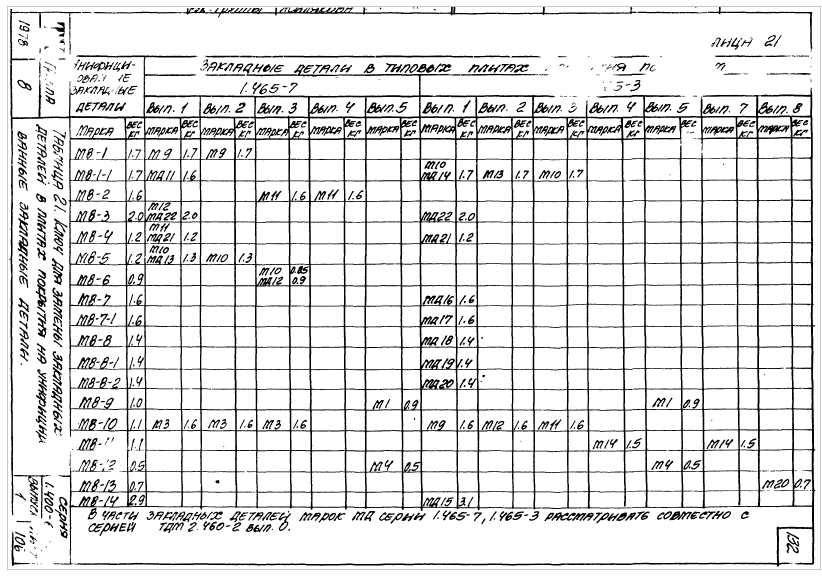 ЛИЦА 21
УНИФИЦИ- ЗАКЛАДНЫЕ ДЕТАЛИ В ТИПОВЫХ ПЛИТАХ
ЗАКЛАДНЫЕ 1.465-7 5-3
ДЕТАЛИ ВЫП. 1 ВЫП. 2 ВЫП. 3 ВЫП. 4 ВЫП. 5 ВЫП. 1 ВЫП. 2 ВЫП. 3 ВЫП. 4 ВЫП. 5 ВЫП. 7 ВЫП. 8
МАРКА ВЕС КГ МАРКА ВЕС КГ МАРКА ВЕС КГ МАРКА ВЕС КГ МАРКА ВЕС КГ МАРКА ВЕС КГ МАРКА ВЕС КГ МАРКА ВЕС КГ МАРКА ВЕС КГ МАРКА ВЕС КГ МАРКА ВЕС КГ МАРКА ВЕС КГ МАРКА ВЕС КГ
МВ-1 1.7 М9 1.7 М9 1.7
М10
МВ-1-1 1.7 МД11 1.6 МД14 1.7 М13 1.7 М10 1.7
МВ-2 1.6 М11 1.6 М11 1.6
М12
МВ-3 2.0 МД22 2.0 МД22 2.0
М11
МВ-4 1.2 МД21 1.2 МД21 1.2
М10
МВ-5 1.2 МД13 1.3 М10 1.3
М10 0.85
МВ-6 0.9 МД12 0.9
МВ-7 1.6 МД16 1.6
МВ-7-1 1.6 МД17 1.6
МВ-8 1.4 МД18 1.4
МВ-8-1 1.4 МД19 1.4
МВ-8-2 1.4 МД20 1.4
МВ-9 1.0 М1 0.9 М1 0.9
МВ-10 1.1 М3 1.6 М3 1.6 М3 1.6 М9 1.6 М12 1.6 М11 1.6
МВ- 1.1 М14 1.5 М14 1.5
МВ- 2 0.5 М4 0.5 М4 0.5
МВ-13 0.7 М20 0.7
МВ-14 2.9 МД15 3.1
В ЧАСТИ ЗАКЛАДНЫХ ДЕТАЛЕЙ МАРОК МД СЕРИИ 1.465-7, 1.465-3 РАССМАТРИВАТЬ СОВМЕСТНО С
СЕРИЕЙ ТДМ 2.460-2 ВЫП. 0.
132
1978 8
ТАБЛИЦА 21. КЛЮЧ ДЛЯ ЗАМЕНЫ ЗАКЛАДНЫХ
ДЕТАЛЕЙ В ПЛИТАХ ПОКРЫТИЯ НА УНИФИЦИ-
ВАННЫЕ ЗАКЛАДНЫЕ ДЕТАЛИ.
СЕРИЯ
1.400-6
ВЫПУСК
1 106